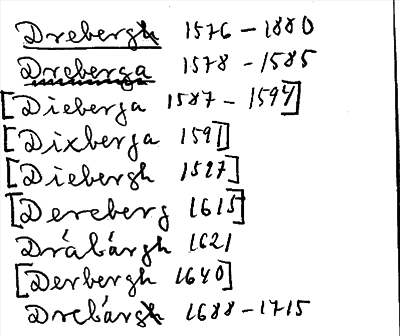 Drebergh 1576 - 1880
Dreberga 1578 - 1585
[Dieberga 1587 - 1594]
[Dixberga 1591]
[Diebergh 1597]
[Dereberg 1615]
Drábárgh 1621
[Derbergh 1640]
Drebárgh 1688 - 1715